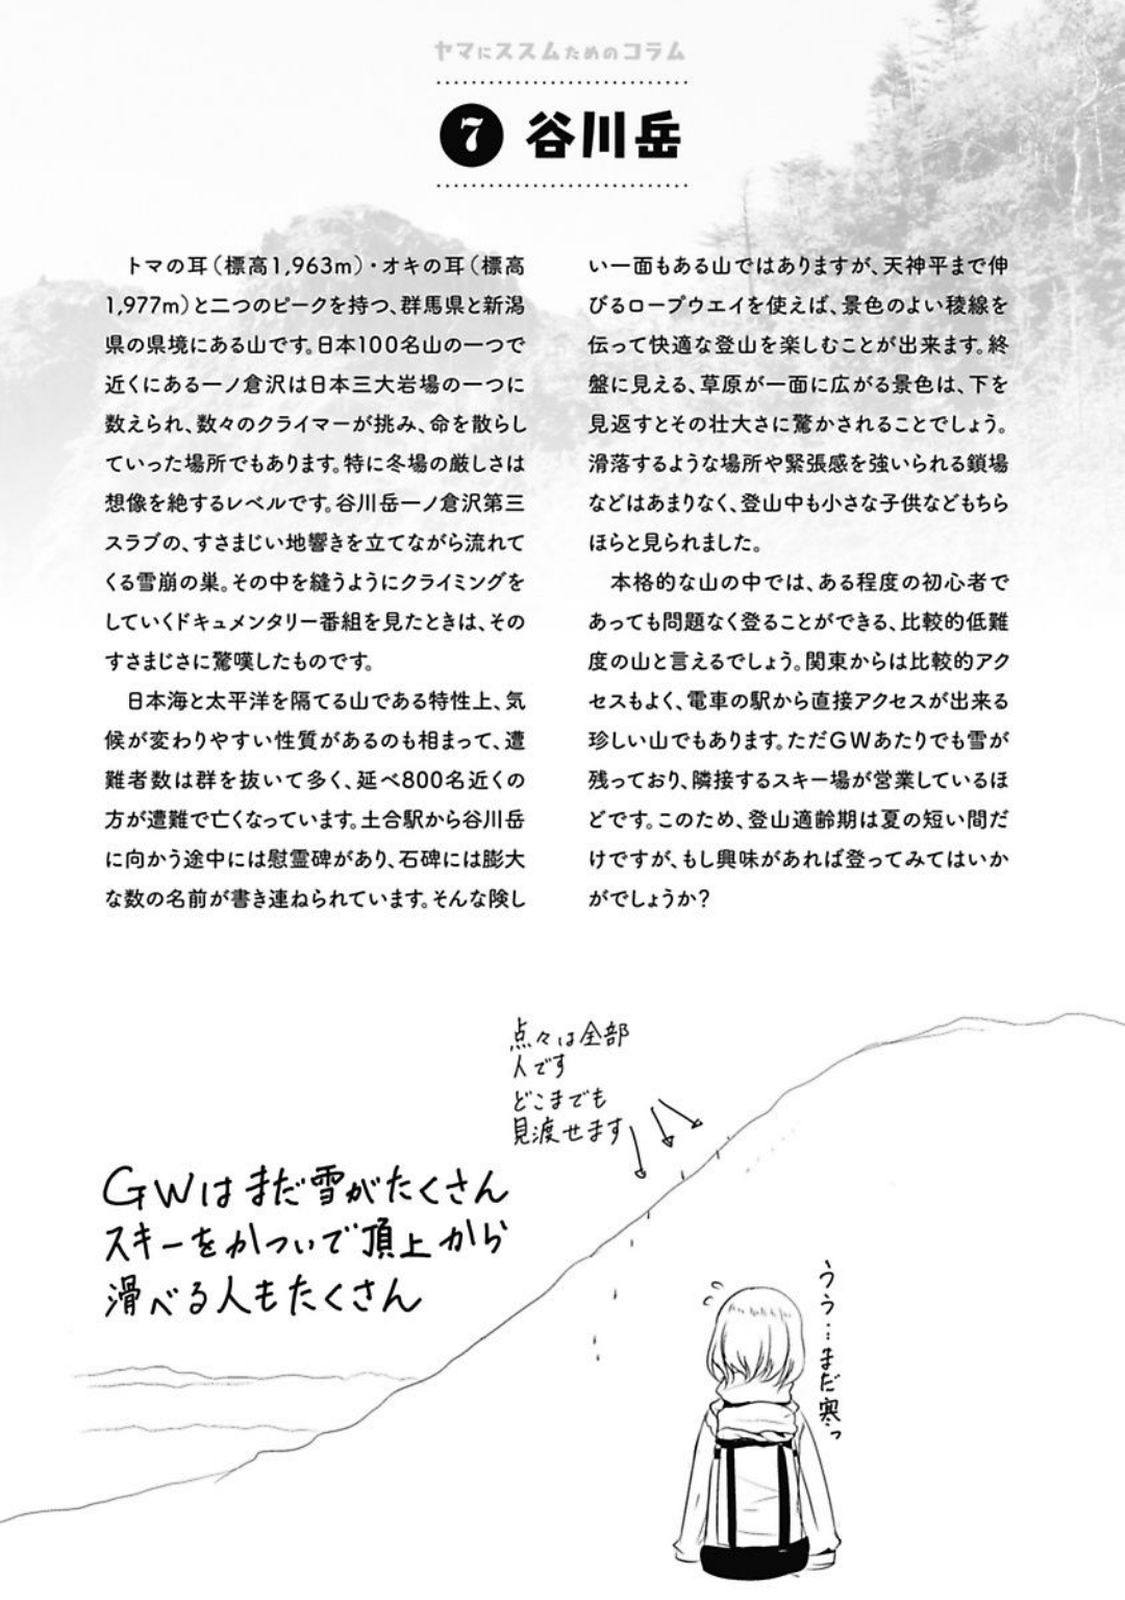 ヤマにススムためのコラム
7 谷川岳
トマの耳（標高1,963m）・オキの耳（標高
1,977m）と二つのピークを持つ、群馬県と新潟
県の県境にある山です。日本100名山の一つで
近くにある一ノ倉沢は日本三大岩場の一つに
数えられ、数々のクライマーが挑み、命を散らし
ていった場所でもあります。特に冬場の厳しさは
想像を絶するレベルです。谷川岳一ノ倉沢第三
スラブの、すさまじい地響きを立てながら流れて
くる雪崩の巣。その中を縫うようにクライミングを
していくドキュメンタリー番組を見たときは、その
すさまじさに驚嘆したものです。
日本海と太平洋を隔てる山である特性上、気
候が変わりやすい性質があるのも相まって、遭
難者数は群を抜いて多く、延べ800名近くの
方が遭難で亡くなっています。土合駅から谷川岳
に向かう途中には慰霊碑があり、石碑には膨大
な数の名前が書き連ねられています。そんな険し
い一面もある山ではありますが、天神平まで伸
びるロープウエイを使えば、景色のよい稜線を
伝って快適な登山を楽しむことが出来ます。終
盤に見える、草原が一面に広がる景色は、下を
見返すとその壮大さに驚かされることでしょう。
滑落するような場所や緊張感を強いられる鎖場
などはあまりなく、登山中も小さな子供などもちら
ほらと見られました。
本格的な山の中では、ある程度の初心者で
あっても問題なく登ることができる、比較的低難
度の山と言えるでしょう。関東からは比較的アク
セスもよく、電車の駅から直接アクセスが出来る
珍しい山でもあります。ただGWあたりでも雪が
残っており、隣接するスキー場が営業しているほ
どです。このため、登山適齢期は夏の短い間だ
けですが、もし興味があれば登ってみてはいか
がでしょうか？
点々は全部
人です
どこまでも
見渡せます
GWはまだ雪がたくさん
スキーをかついで頂上から
滑べる人もたくさん
うぅ…まだ寒っ